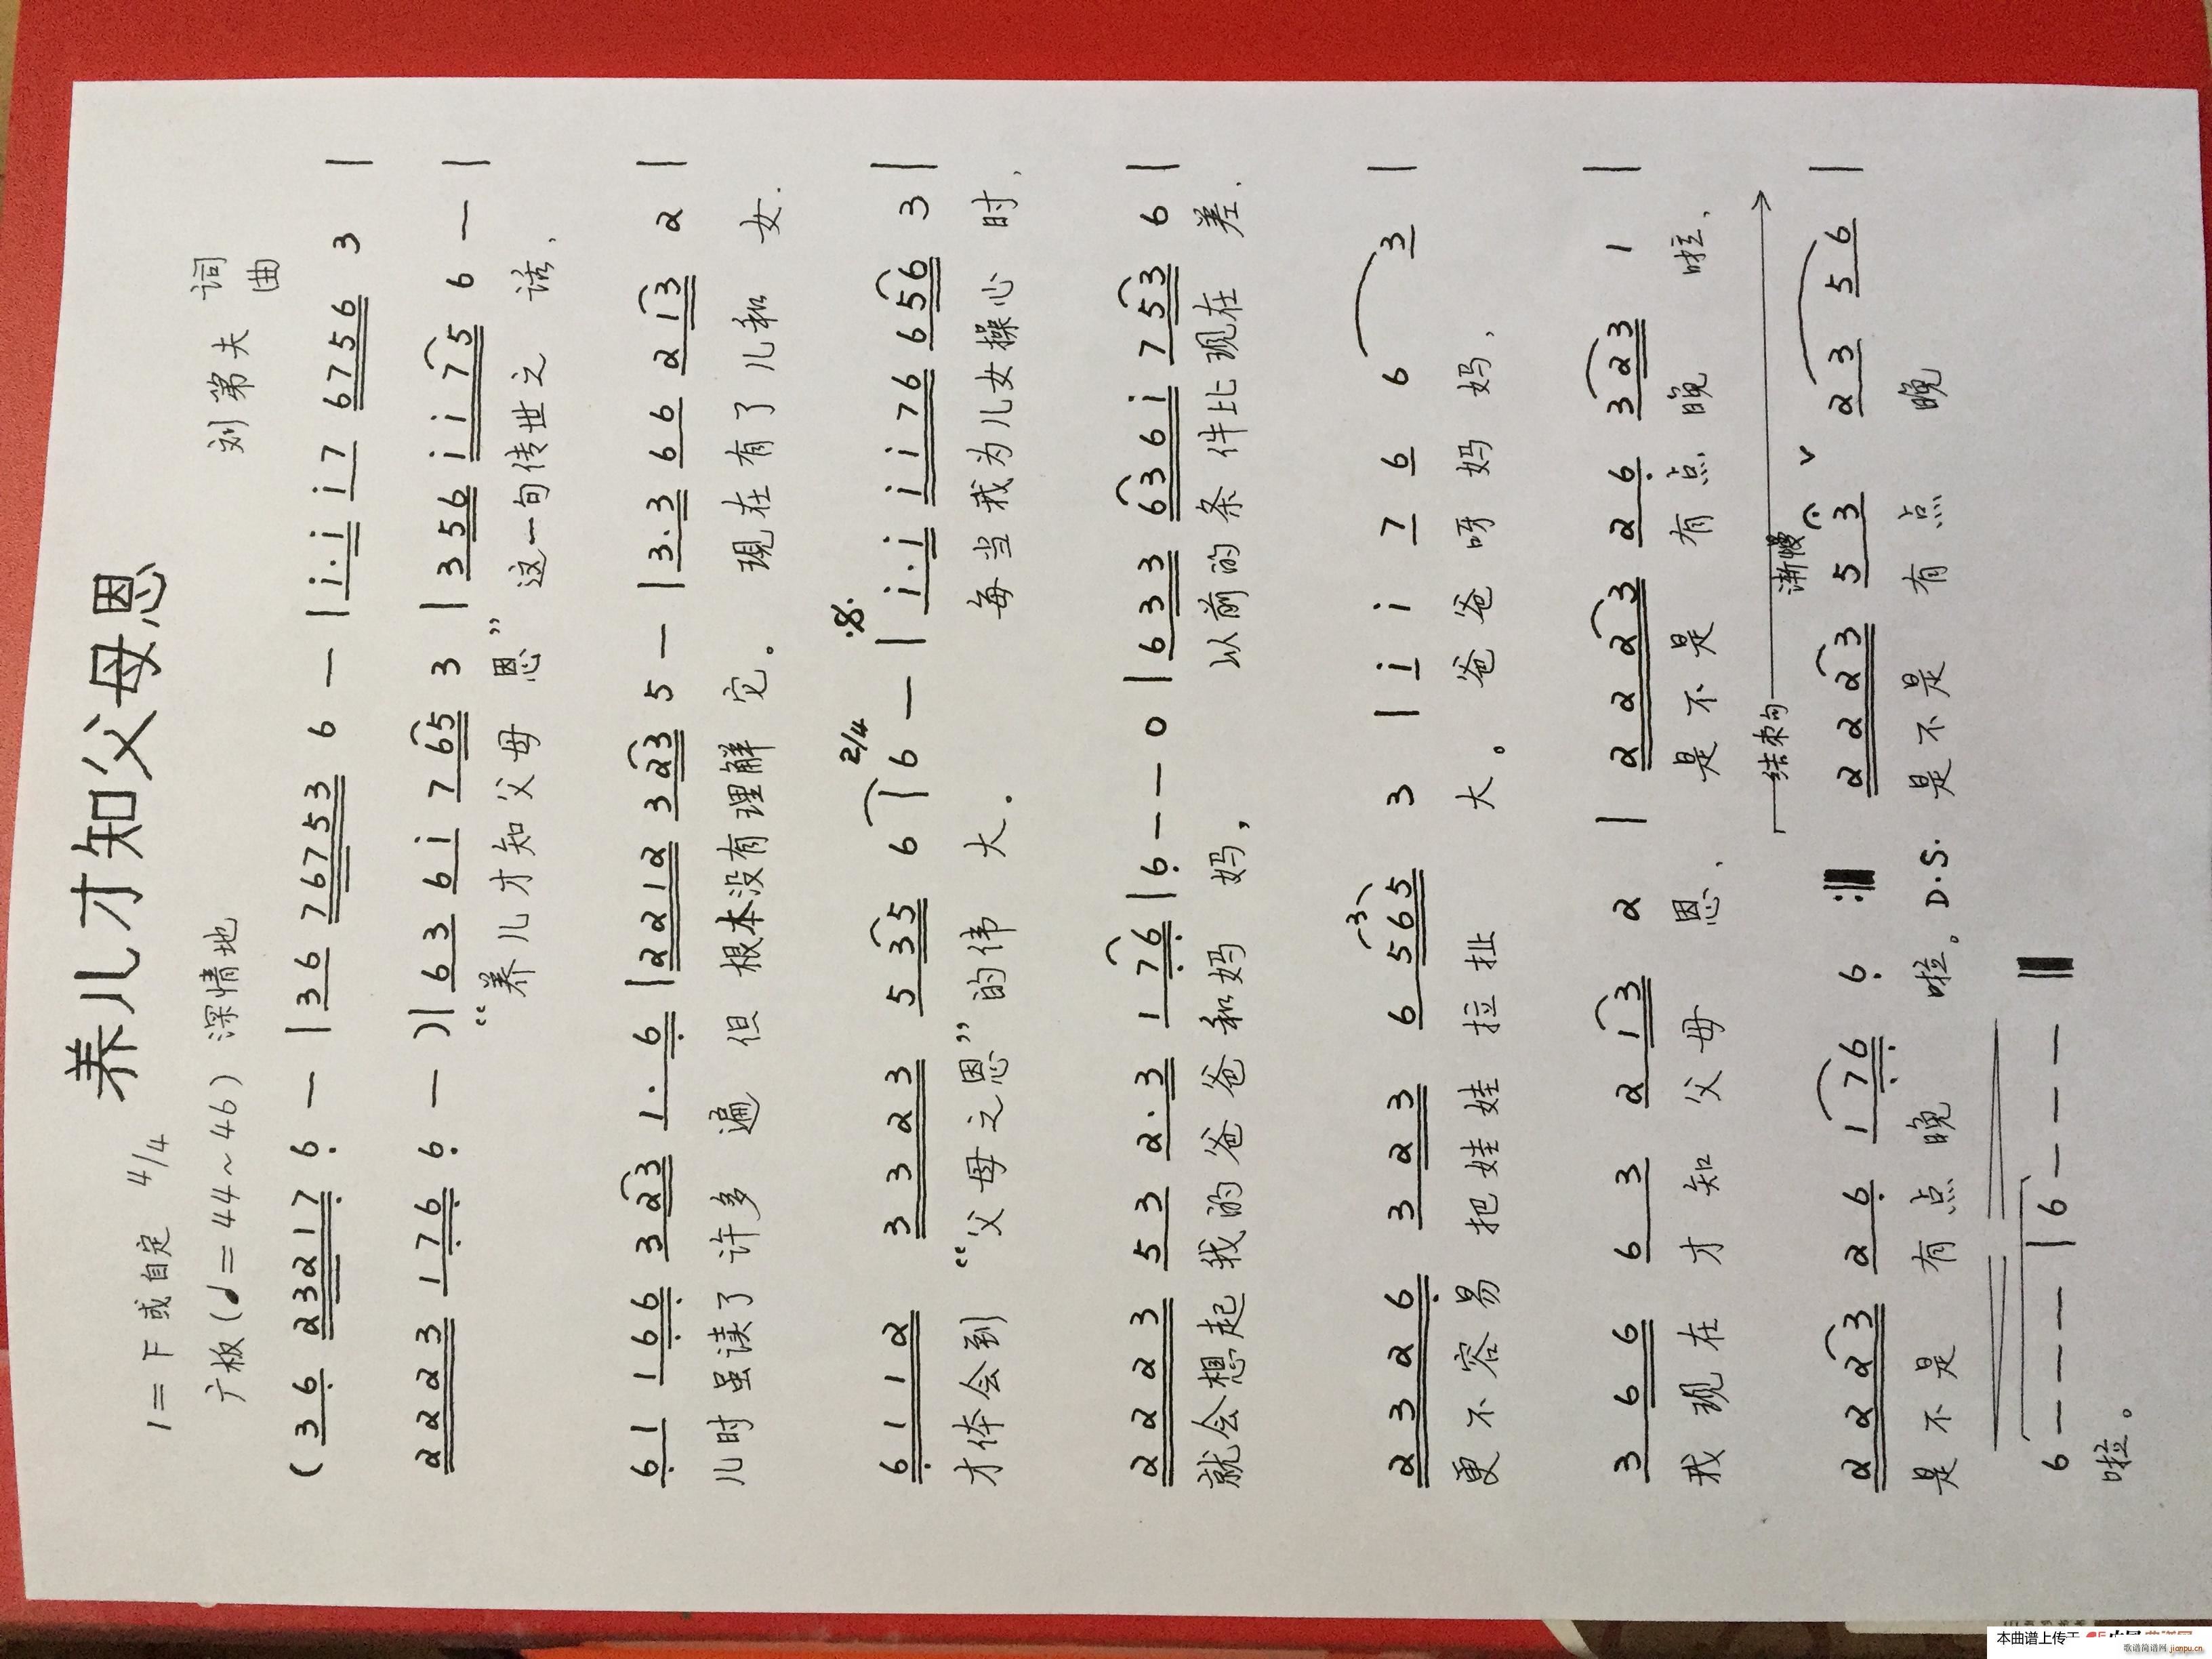 养儿才知父母恩
1=F 或自定 4/4
刘第夫 词
曲
广板(♩=44~46) 深情地
(3 6 2 3 2 1 7 6 — | 3 6 7 6 7 5 3 6 — | i·i i 7 6 7 5 6 3 |
2 2 2 3 1 7 6 6 — )| 6 3 6 i 7 6 5 3 | 3 5 6 i i 7 5 6 — |
“养儿才知父母恩” 这一句传世之 话,
6 1 1 6 6 3 2 3 1· 6 | 2 2 1 2 3 2 3 5 — | 3·3 6 6 2 1 3 2 |
儿时虽读了 许多 遍 但 根本没有理解 它。 现在有了儿和 女.
2/4
6 1 1 2 3 3 2 3 5 3 5 6 | 6 — | i·i i i 7 6 6 5 6 3 |
才体会到 “父母之恩”的伟 大. 每当我为儿女操心 时,
2 2 2 3 5 3 2·3 1 7 6 | 6 — — 0 | 6 3 3 6 3 6 i 7 5 3 6 |
就会想起我的爸爸和妈 妈, 以前的条件比现在 差.
3
2 3 2 6 3 2 3 6 5 6 5 3 | i i 7 6 6 3 |
更不容易 把娃娃 拉扯 大。 爸爸呀妈妈,
3 6 6 6 3 2 1 3 2 | 2 2 2 3 2 6 3 2 3 1 |
我现在 才知父母 恩、 是不是 有点晚 啦,
结束句 渐慢
2 2 2 3 2 6 1 7 6 6 :‖ 2 2 2 3 5 3 ∨ 2 3 5 6 |
是不是 有点晚 啦。D.S. 是不是 有点 晚
6 — — — | 6 — — — ‖
啦。
本曲谱上传于
歌谱简谱网 jianpu.cn